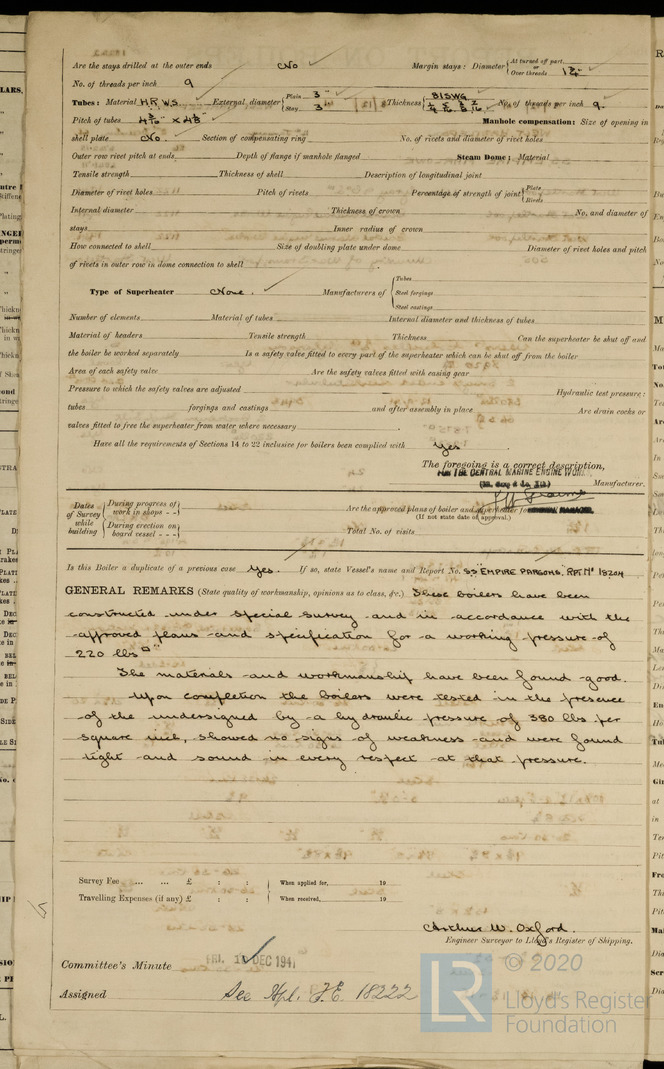 Are the stays drilled at the outer ends No Margin stays: Diameter { At turned off part, or Over threads 1¾"
No. of threads per inch 9
Tubes: Material H.R.W.S. External diameter { Plain 3" Stay 3" Thickness { 8 I S W G No. of threads per inch 9
Pitch of tubes Manhole compensation: Size of opening in
shell plate No. Section of compensating ring No. of rivets and diameter of rivet holes
Outer row rivet pitch at ends Depth of flange if manhole flanged Steam Dome: Material
Tensile strength Thickness of shell Description of longitudinal joint
Diameter of rivet holes Pitch of rivets Percentage of strength of joint { Plate Rivets
Internal diameter Thickness of crown No. and diameter of
stays Inner radius of crown
How connected to shell Size of doubling plate under dome Diameter of rivet holes and pitch
of rivets in outer row in dome connection to shell
Type of Superheater None. Manufacturers of { Tubes Steel forgings Steel castings
Number of elements Material of tubes Internal diameter and thickness of tubes
Material of headers Tensile strength Thickness Can the superheater be shut off and
the boiler be worked separately Is a safety valve fitted to every part of the superheater which can be shut off from the boiler
Area of each safety valve Are the safety valves fitted with easing gear
Pressure to which the safety valves are adjusted Hydraulic test pressure:
tubes forgings and castings and after assembly in place Are drain cocks or
valves fitted to free the superheater from water where necessary
Have all the requirements of Sections 14 to 22 inclusive for boilers been complied with Yes
The foregoing is a correct description,
FOR THE CENTRAL MARINE ENGINE WORKS
Manufacturer.
Dates of Survey while building { During progress of work in shops - - During erection on board vessel - - -
Are the approved plans of boiler and superheater forwarded herewith
(If not state date of approval.)
Total No. of visits
Is this Boiler a duplicate of a previous case Yes. If so, state Vessel's name and Report No. SS "EMPIRE PARSONS. RPT. No 18204
GENERAL REMARKS (State quality of workmanship, opinions as to class, &c.) These boilers have been
constructed under special survey and in accordance with the
approved plans and specification for a working pressure of
220 lbs □"
The materials and workmanship have been found good.
Upon completion the boilers were tested in the presence
of the undersigned by a hydraulic pressure of 380 lbs per
square inch, showed no signs of weakness and were found
tight and sound in every respect at that pressure.
Survey Fee ... ... £ : : When applied for, 19
Travelling Expenses (if any) £ : : When received, 19
Arthur W. Oxford.
Engineer Surveyor to Lloyd's Register of Shipping.
Committee's Minute FRI. DEC 1941
Assigned See Hpl. J.E. 18222
LR © 2020
Lloyd's Register
Foundation